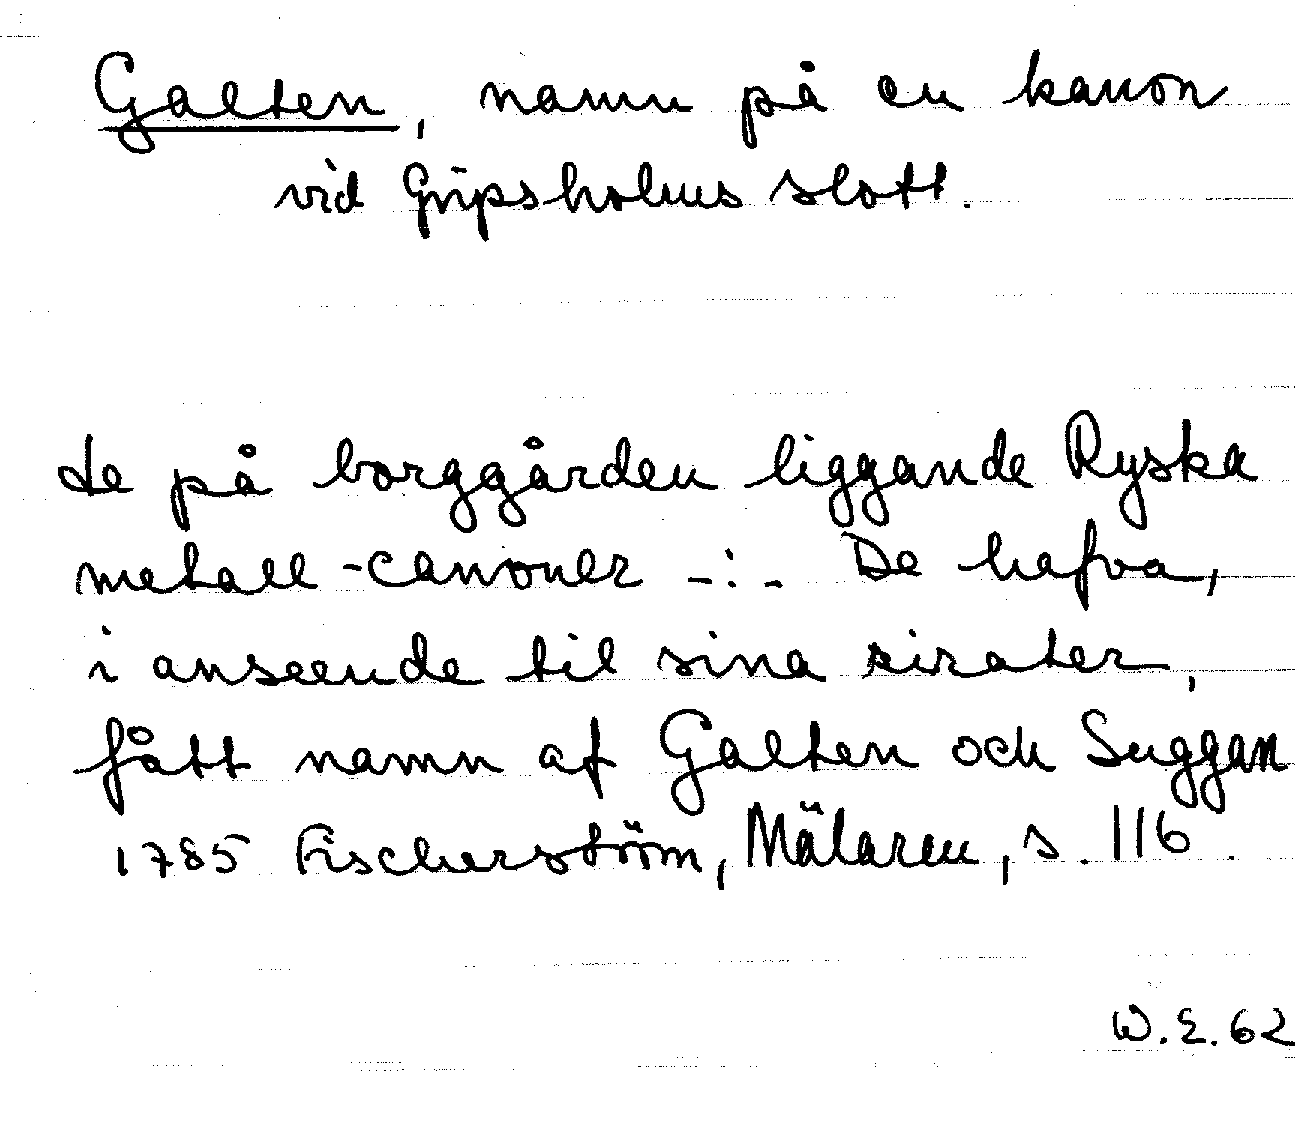 Galten, namn på en kanon
vid Gripsholms slott.
de på borggården liggande Ryska
metall-canoner -:- De hafva,
i anseende til sina sirater,
fått namn af Galten och Suggan
1785 Fischerström, Mälaren, s. 116.
W.E. 62